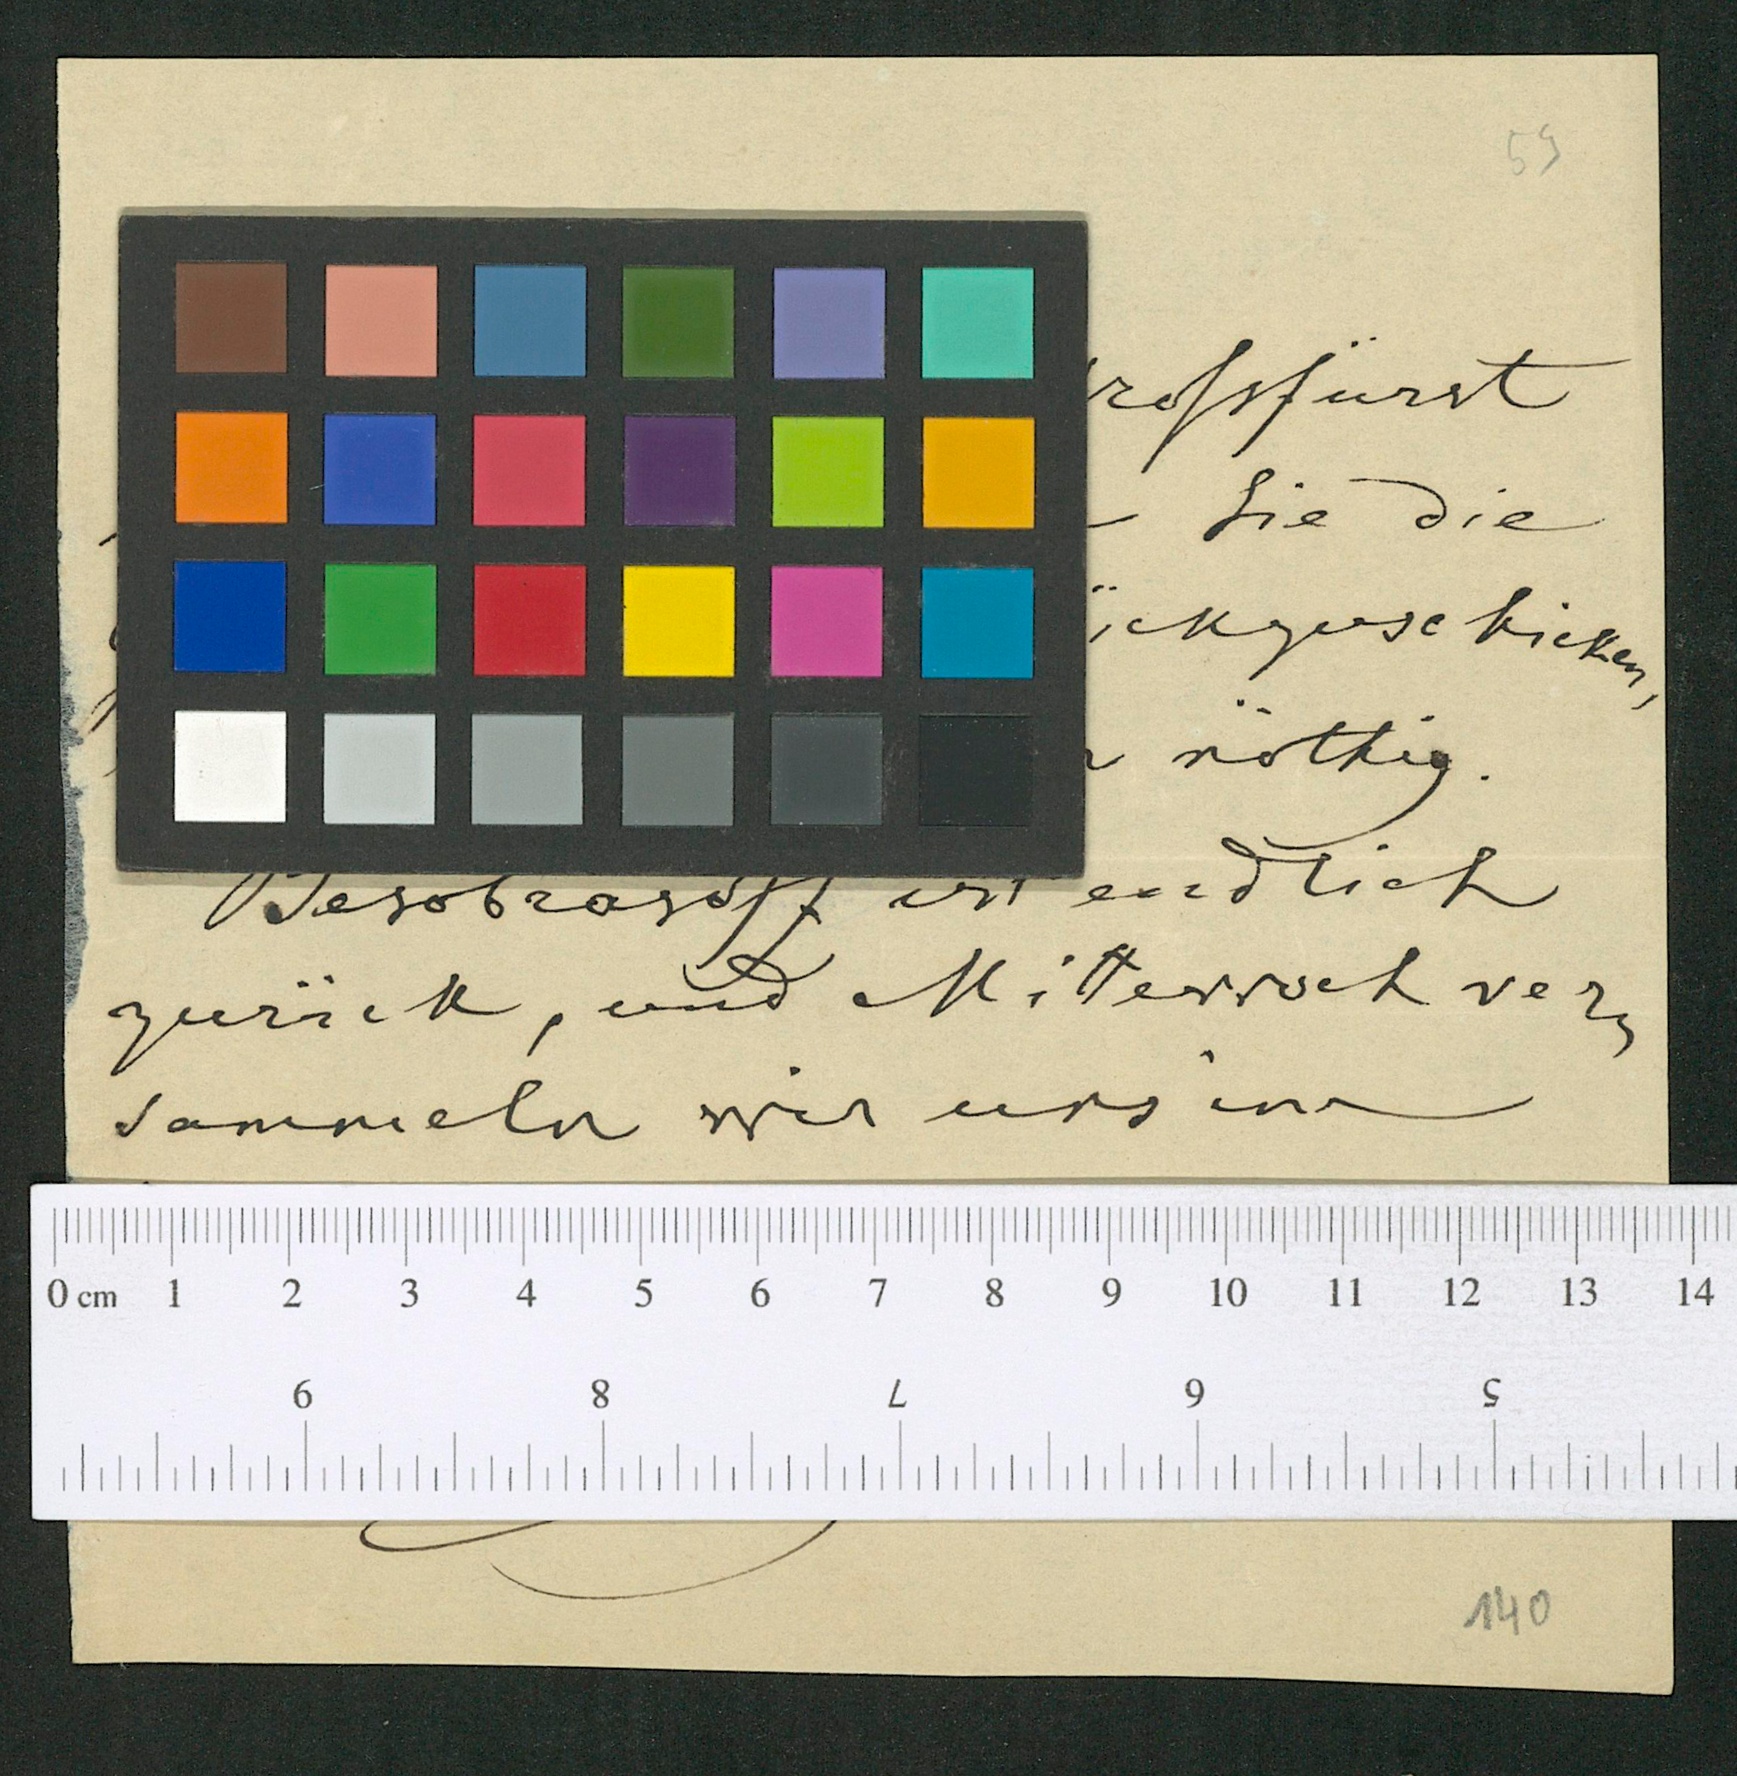 59
Sie die
nöthig.
Besobrasoff ist endlich
zurück, und Mittwoch ver⸗
sammeln wir uns in
0 cm 1 2 3 4 5 6 7 8 9 10 11 12 13 14
9 8 7 6 5
140